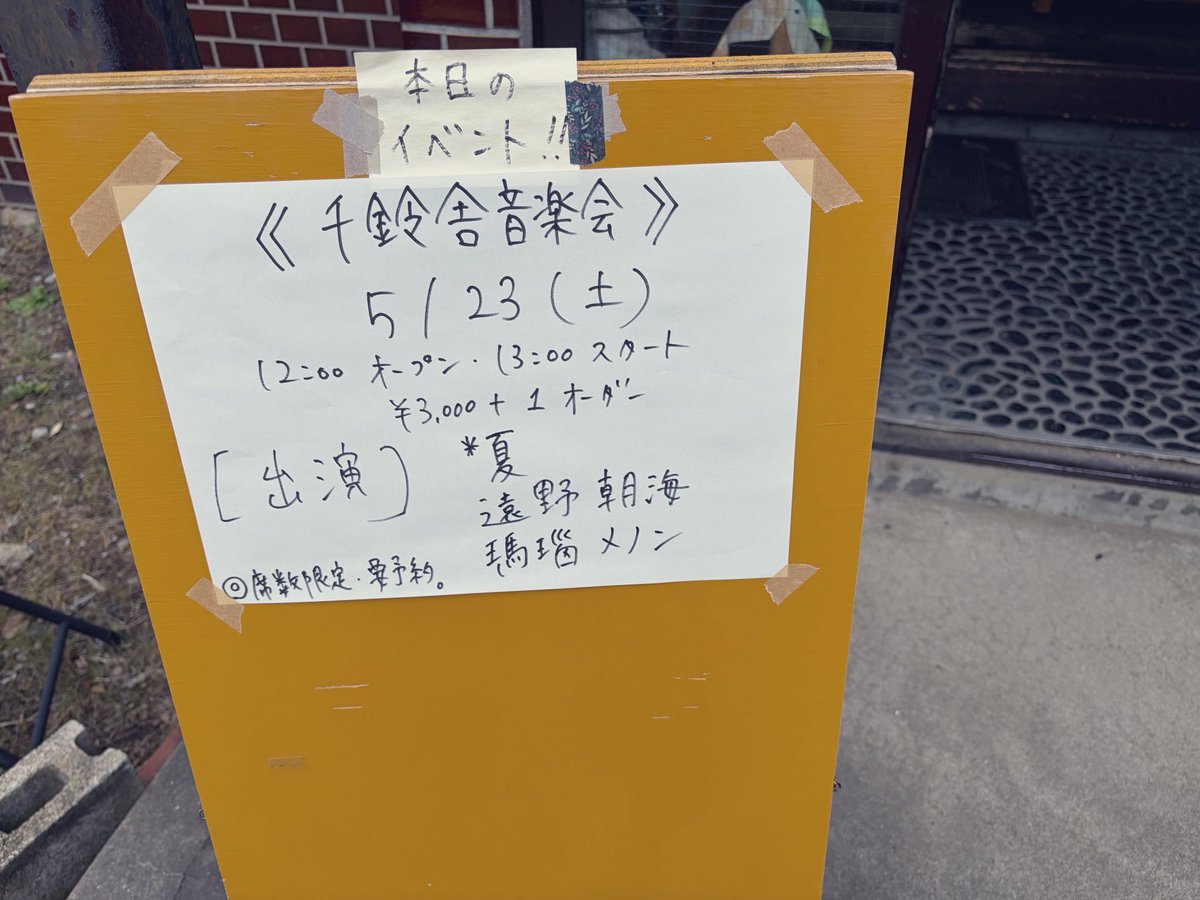 本日の
イベント!!
《千鈴舎音楽会》
5/23(土)
12:00 オープン・13:00 スタート
¥3,000+1オーダー
[出演] *夏
遠野朝海
瑪瑙メノン
◎席数限定・要予約。